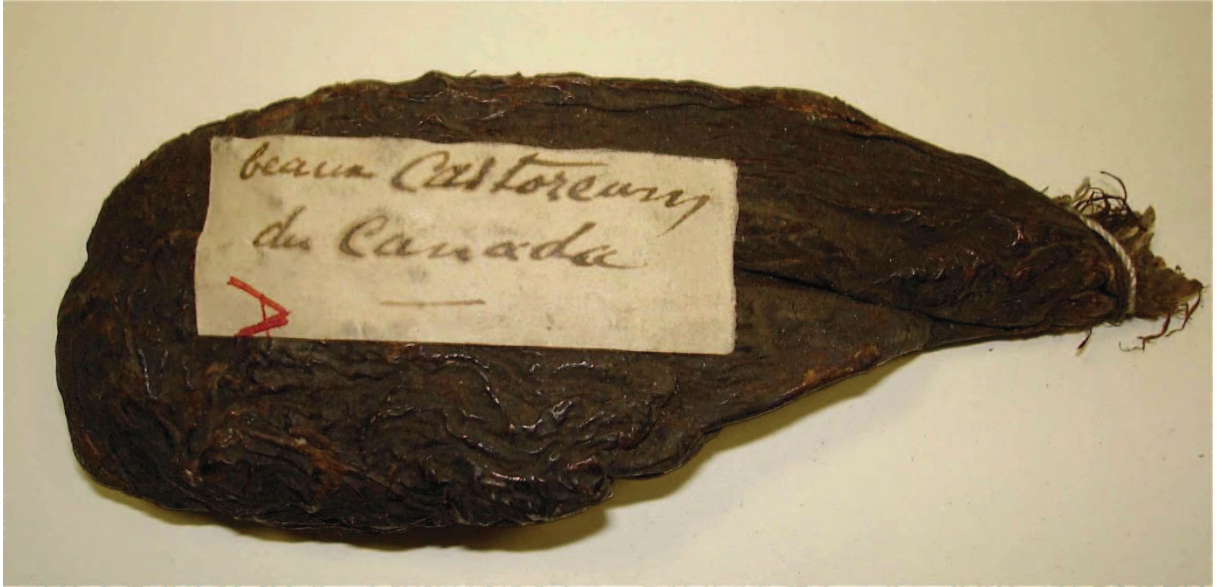 beaux Castoreum
du Canada
A